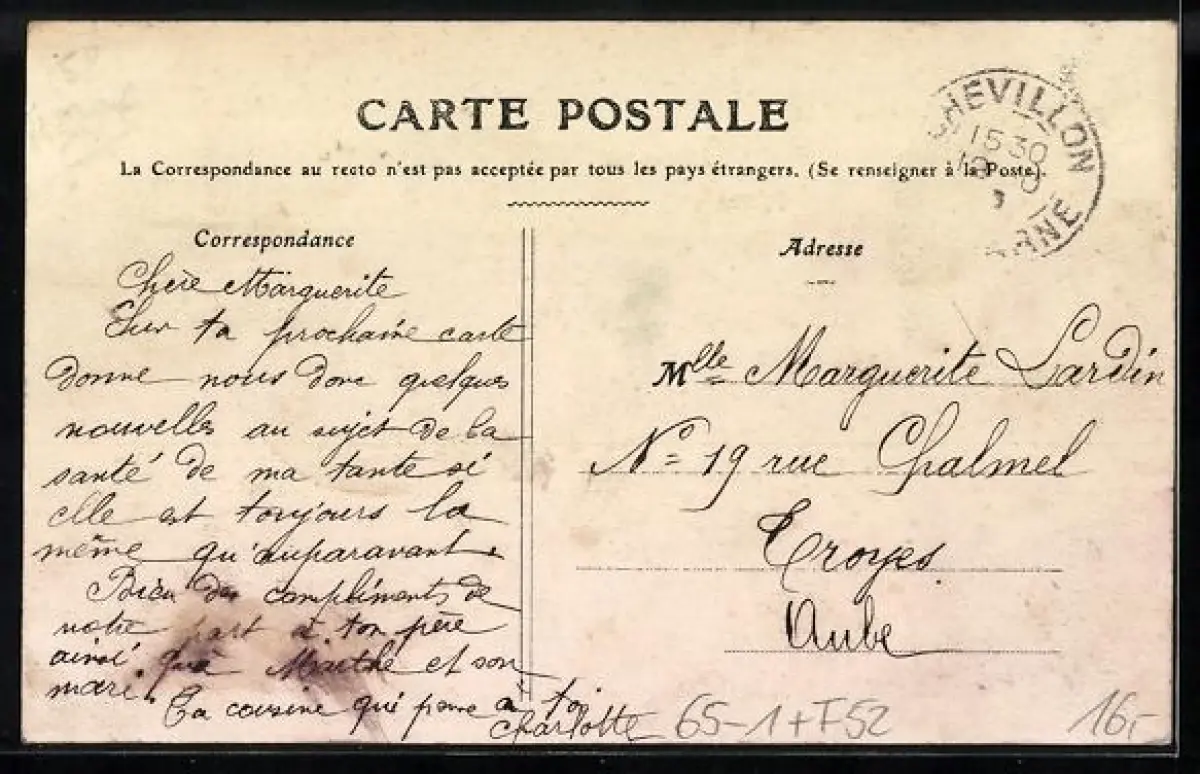 CARTE POSTALE
La Correspondance au recto n'est pas acceptée par tous les pays étrangers. (Se renseigner à la Poste).
CHEVILLON
15 30
ARNE
Correspondance
Chère Marguerite
Sur ta prochaine carte
donne nous donc quelques
nouvelles au sujet de la
santé de ma tante si
elle est toujours la
même qu'auparavant.
Bien des compliments de
notre part à ton père
ainsi qu'à Marthe et son
mari.
Ta cousine qui pense à toi
Charlotte
Adresse
Mlle Marguerite Lardin
No 19 rue Chalmel
Troyes
Aube
65-1+F52
16,-